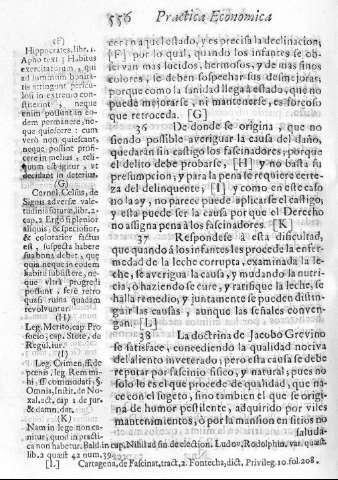 556 Practica Economica
(F)
Hippocrates, lib. 1.
Apho rism 3 Habitus
exercitatorum, qui
ad summum bonita-
tis stringunt pericu-
losi in extremo cons-
titerint, neque
enim possunt in eo-
dem permanere, ne-
que quiescere: cum
verò non quiescant,
neque possint profi-
cere in melius, reli-
quum est igitur, vt
decidant in deterius.
(G)
Cornel. Celsus, de
Signis adversæ vale-
tudinis futuræ, lib. 2.
cap. 2. Ergo si plenior
aliquis, & speciosior,
& coloratior factus
est, suspecta habere
sua bona debet, quæ
quia neque in eodem
habitu subsistere, ne-
que vltra progredi
possunt, ferè retro
quasi ruina quadam
revolvuntur.
(H)
Leg. Merito, cap. Pro
socio, cap. State, de
Regul. iur.
(I)
Leg. Crimen, ff. de
pœnis, leg. Rem mi-
hi, ff. commodati, §.
Omnis, Instit. de No-
xal. ect. cap. 1 de iur.
& damn. dat.
(K)
Nam in lege non ca-
nitur, quod in practi-
ca non habetur. Bald. in cap. Nihil ad fin de election. Ludov. Rodolphin. var. quæst.
lib. 2 quæst 42 num. 394.
[L] Cartagena, de Fascinat, tract. 2. Fontecha, dict. Privileg. 10. fol. 208.
cer en aquel estado, y es precisa la declinacion,
[F] por lo qual, quando los infantes se ob-
servan mas lucidos, hermosos, y de mas finos
colores, se deben sospechar sus desmejoras;
porque como la sanidad llega à estado, que no
puede mejorarse, ni mantenerse, es forçoso
que retroceda. [G]
36 De donde se origina, que no
siendo possible averiguar la causa del daño,
quedaràn sin castigo los fascinadores; porque
el delito debe probarse, [H] y no basta su
presumpcion; y para la pena le requiere certe-
za del delinquente; [I] y como en este caso
no la ay, no parece puede aplicarse el castigo,
y esta puede ser la causa porque el Derecho
no assigna pena à los fascinadores. [K]
37 Respondese à esta dificultad,
que quando à los infantes les proceda la enfer-
medad de la leche corrupta, examinada la le-
che, se averigua la causa, y mudando la nutri-
cia, ò haziendo se cure, y ratifique la leche, se
halla remedio, y juntamente se pueden distin-
guir las causas, aunque las señales conven-
gan. [L]
38 La doctrina de Jacobo Grevino
se satisface, concediendo la qualidad nociva
del aliento inveterado; pero esta causa se debe
reputar por fascinio fisico, y natural; pues no
solo lo es el que procede de qualidad, que na-
ce con el sugeto, sino tambien el que se origi-
na de humor pestilente, adquirido por viles
mantenimientos, ò por la mansion en sitios no
saluda-